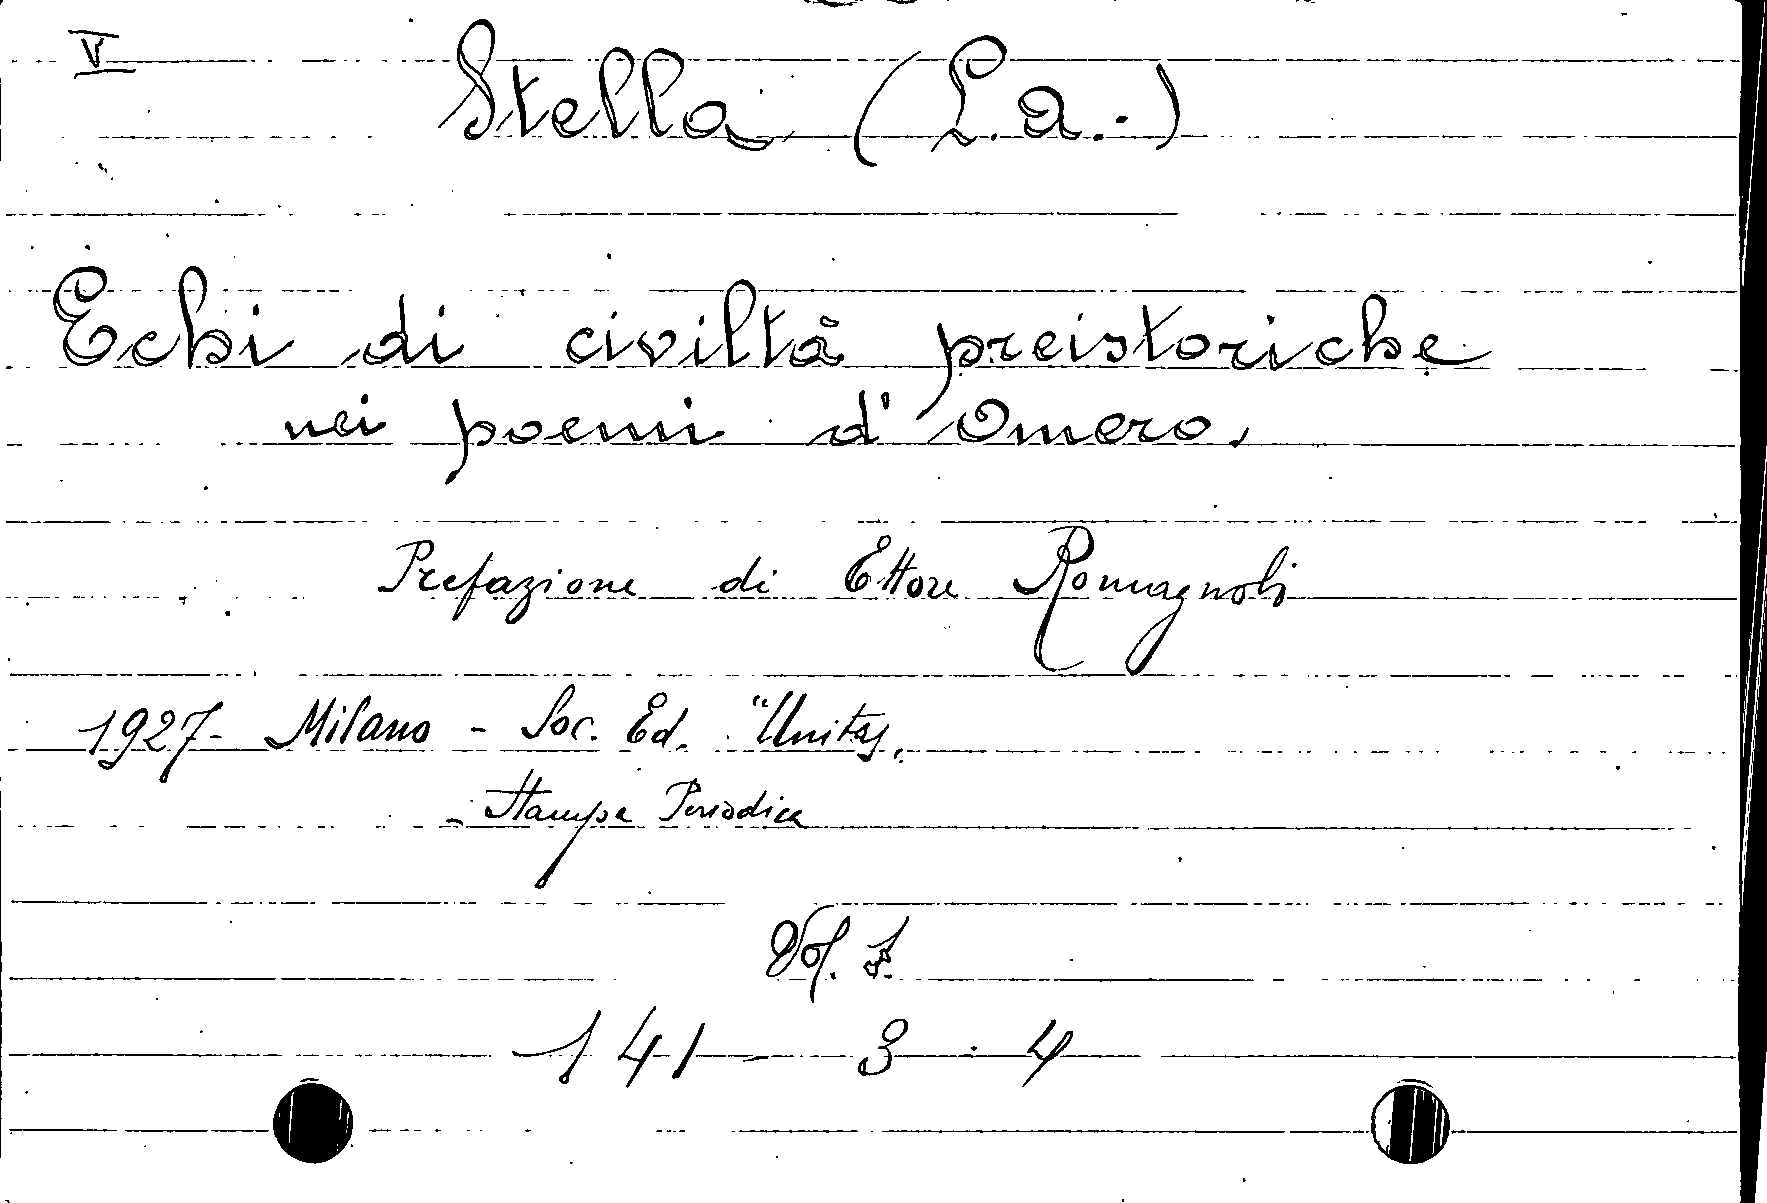 V
Stella (L. a.)
Echi di civiltà preistoriche
nei poemi d'Omero.
Prefazione di Ettore Romagnoli
1927 - Milano - Soc. Ed. "Unitas„
- Stampa Periodica
Vol. I.
141 - 3 - 4